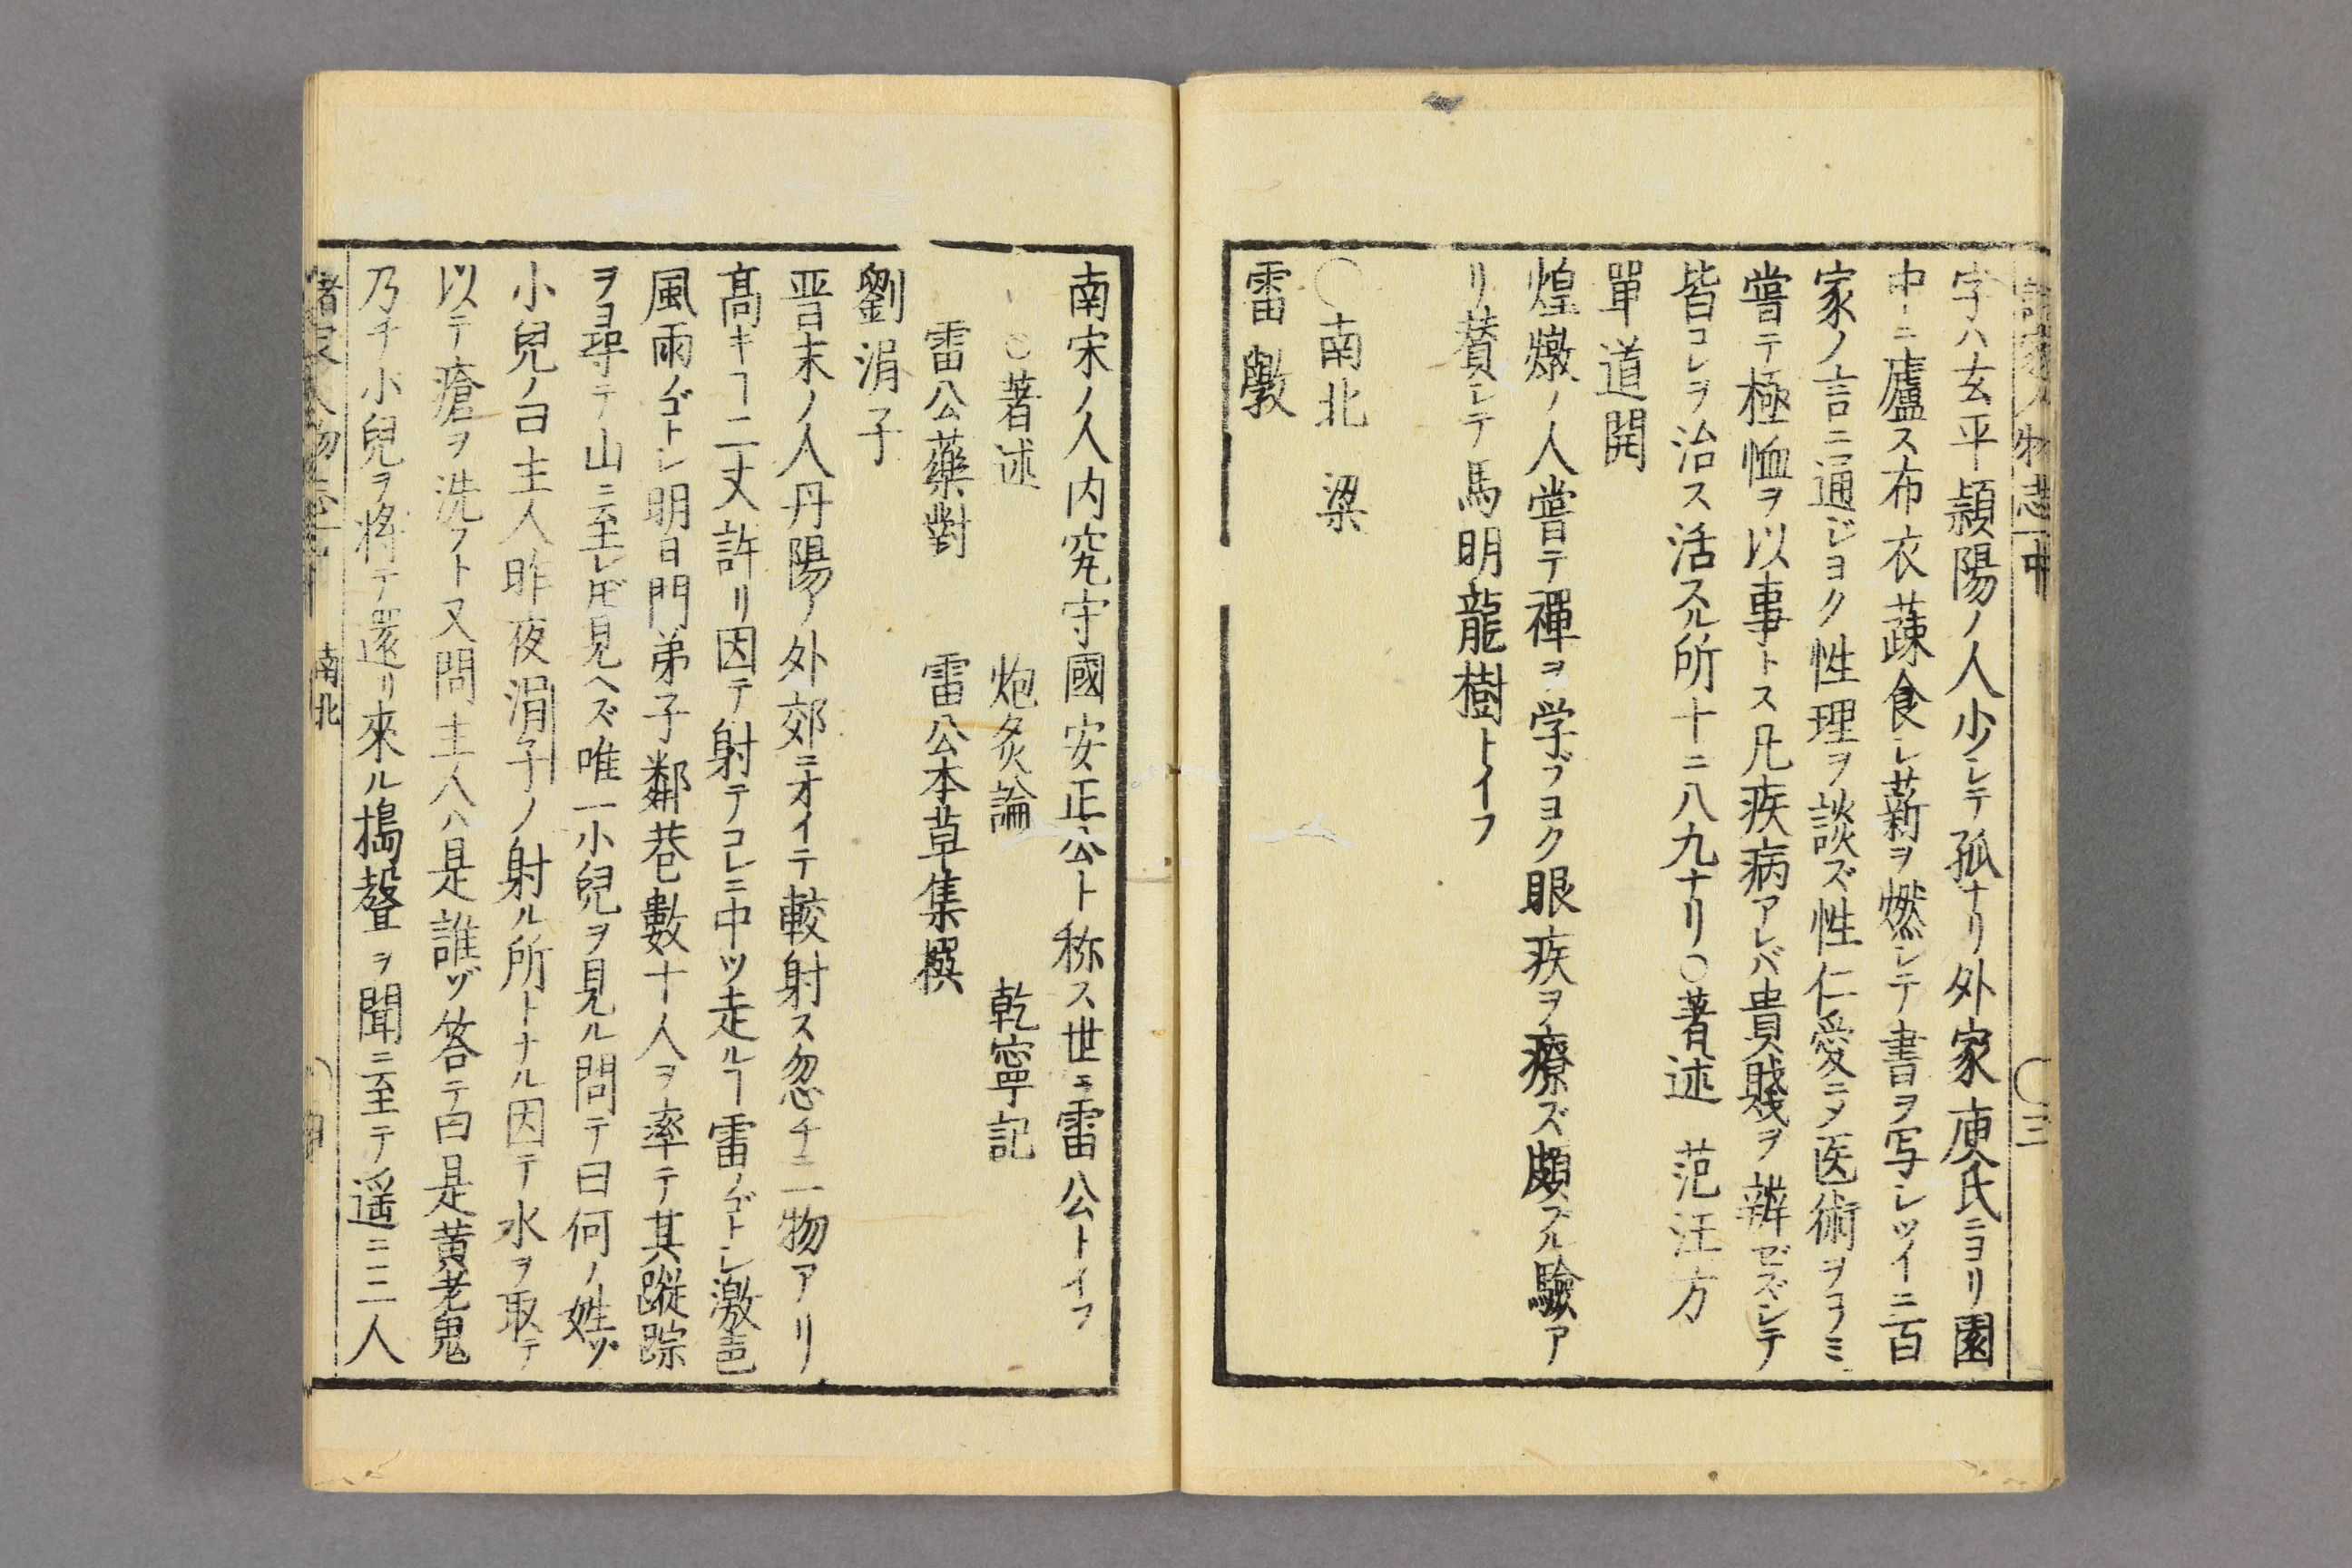 字ハ玄平頴陽ノ人少シテ孤ナリ外家庾氏ニヨリ園
中ニ廬ス布衣蔬食シ薪ヲ燃シテ書ヲ写シツイニ百
家ノ言ニ通ジヨク性理ヲ談ズ性仁愛ニメ医術ヲヨミ
嘗テ極恤ヲ以事トス凡疾病アレバ貴賤ヲ辨ゼズシテ
皆コレヲ治ス活スル所十ニ八九ナリ○著述 范汪方
單道開
煌燉ノ人嘗テ禪ヲ学ブヨク眼疾ヲ療ズ頗ズル驗ア
リ賛シテ馬明龍樹トイフ
○南北 梁
雷斅
南宋ノ人内究守國安正公ト称ス世ニ雷公トイフ
○著述 炮炙論 乾寧記
雷公藥對 雷公本草集撰
劉涓子
晋末ノ人丹陽ノ外郊ニオイテ較射ス忽チ二物アリ
髙キヿ二丈許リ因テ射テコレニ中ツ走ルヿ雷ノゴトシ激声
風雨ノゴトシ明日門弟子鄰巷數十人ヲ率テ其蹤踪
ヲヨ尋テ山ニ至レ𪜈見ヘズ唯一小兒ヲ見ル問テ曰何ノ姓ゾ
小兒ノ曰主人昨夜涓子ノ射ル所トナル因テ水ヲ取テ
以テ瘡ヲ洗フト又問主人ハ是誰ゾ答テ曰是黄老鬼
乃チ小兒ヲ将テ還リ來ル搗聲ヲ聞ニ至テ遥ニ三人
諸家人物志 南北